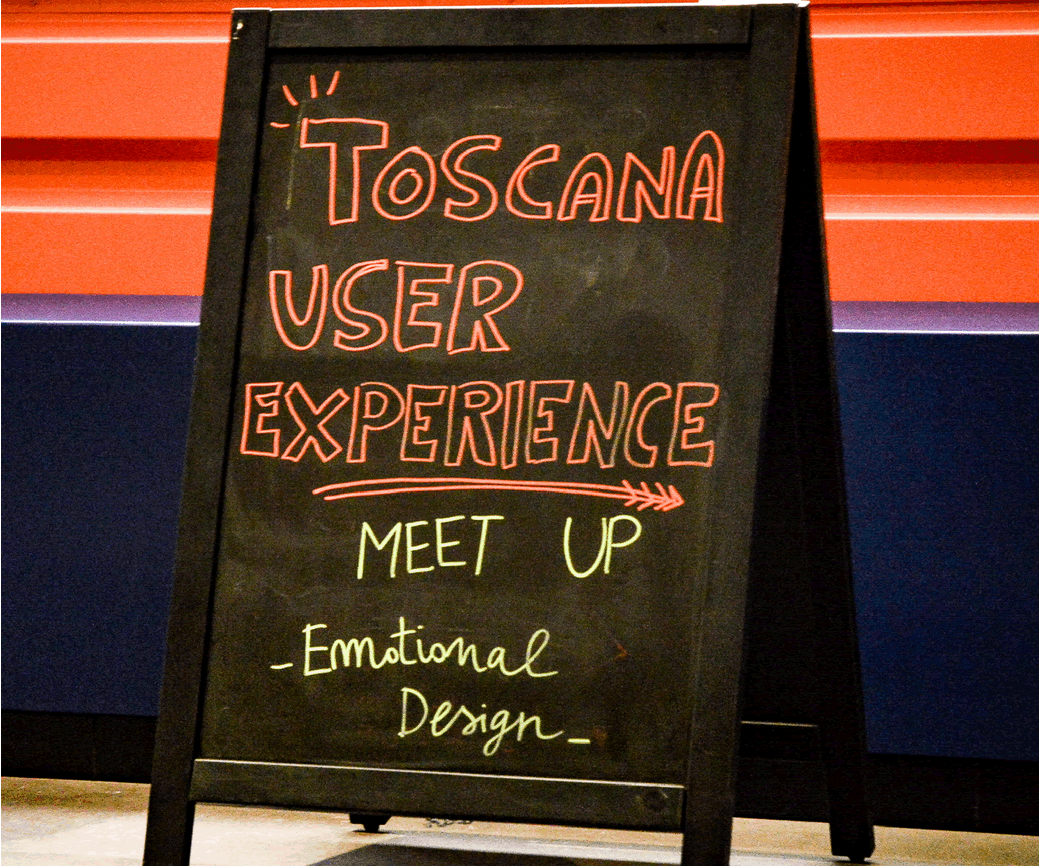 TOSCANA
USER
EXPERIENCE
MEET UP
- Emotional
Design -